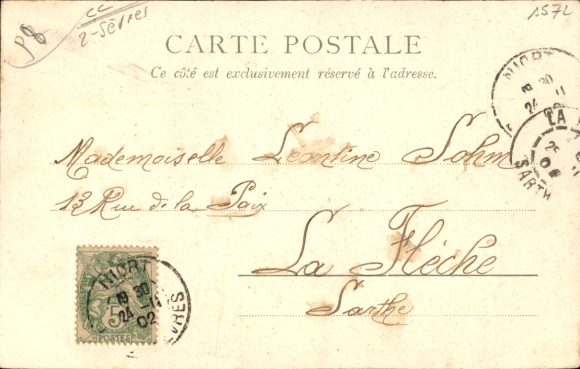 P8
CC
2-Sèvres
1572
CARTE POSTALE
Ce côté est exclusivement réservé à l'adresse.
NIORT
LA
SARTH
Mademoiselle Léontine Sohm
13 Rue de la Paix
La Flèche
Sarthe
NIORT
19 30
24
02
VRES
5
POSTES